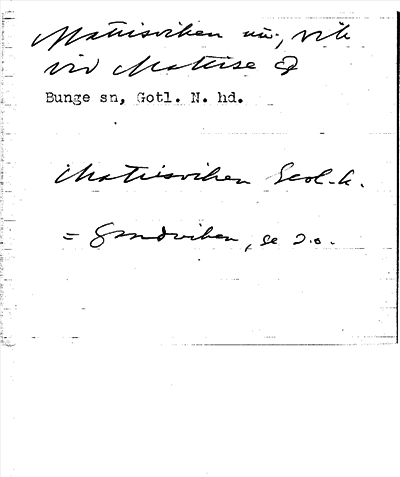 Mattisviken nu, vik
vid Mattise
Bunge sn, Gotl. N. hd.
Mattisviken Geol.k.
= Sandviken, se d.o.